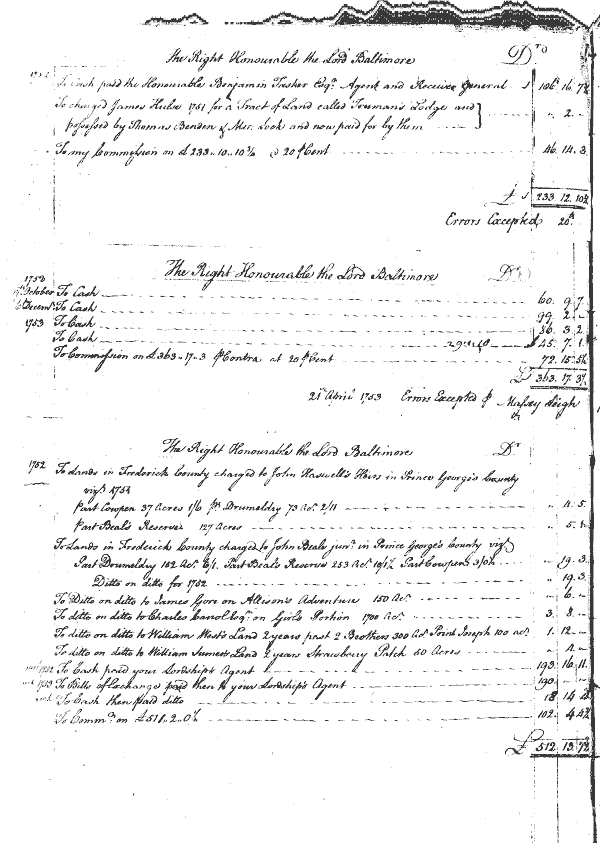 The Right Honourable the Lord Baltimore Dr
To Cash paid the Honourable Benjamin Tasker Esqr. Agent and Receiver General 186 16 7½
To charged James Hulse 1751 for a Tract of Land called Truman's Lodge and
possessed by Thomas Benden & Mr. Lock and now paid for by them " 2 "
To my Commission on £ 233.. 10.. 10½ @ 20 ⅌ Cent 46. 14. 3
£ 233. 12. 10½
Errors Excepted 20th
The Right Honourable the Lord Baltimore Dr
1752
October To Cash 60. 9. 7
Decemr. To Cash 99. 2. -
1753 To Cash 86. 3. 2
To Cash 45. 7. 1
To Commission on £ 363.. 17.. 3 ⅌ Contra at 20 ⅌ Cent 72. 15. 5½
£ 363. 17. 3½
21st April 1753 Errors Excepted ⅌ Massey Leigh
The Right Honourable the Lord Baltimore Dr
1752 To Lands in Frederick County charged to John Haswell's Heirs in Prince George's County
vizt. 1752
Part Cowpen 37 Acres 1/6 pt Drumeldry 73 Acs. 2/11 " 4. 5
Part Beal's Reserve 127 Acres " 5. 1
To Lands in Frederick County charged to John Beale junr. in Prince George's County vizt
Part Drumeldry 152 Acs. 6/1. Part Beal's Reserve 253 Acs. 10/1½ Part Cowpens 3/0½ 19. 3
Ditto on ditto for 1752 " 19. 3
To Ditto on ditto to James Gore on Allison's Adventure 150 Acs. " 6. -
To ditto on ditto to Charles Carrol Esqr. on Girl's Portion 1700 Acs. 3. 8. -
To ditto on ditto to William West's Land 2 years past 2 Brothers 300 Acs. Point Joseph 100 acs. 1. 12. -
To ditto on ditto to William Turner's Land 2 years Strawberry Patch 50 Acres " 4. -
1752 To Cash paid your Lordship's Agent 193. 16. 11
1753 To Bills of Exchange paid then to your Lordship's Agent 190. -
To Cash then paid ditto 18 14
To Commn. on £ 511.. 2.. 0½ 102. 4. 4½
£ 512. 13. 7½